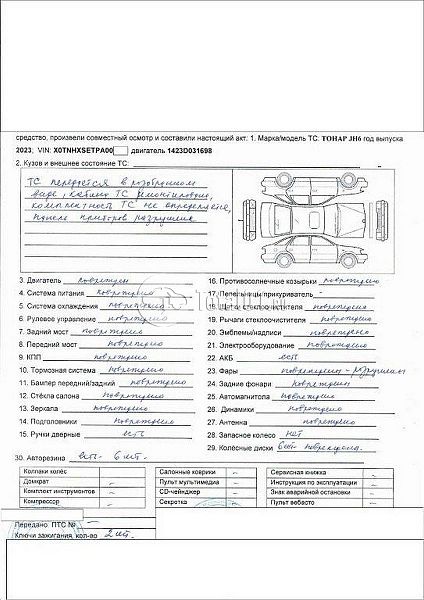 средство, произвели совместный осмотр и составили настоящий акт. 1. Марка/модель ТС: ТОНАР JH6 год выпуска
2023; VIN: X0TNHXSETPA00 двигатель 1423D031698
2. Кузов и внешнее состояние ТС:
ТС передается в разобранном
виде, кабина ТС демонтирована,
комплектность ТС не определяется,
панель приборов разрушена.
3. Двигатель повреждён
4. Система питания повреждено
5. Система охлаждения повреждено
6. Рулевое управление повреждено
7. Задний мост повреждено
8. Передний мост повреждено
9. КПП повреждено
10. Тормозная система повреждено
11. Бампер передний/задний повреждено
12. Стёкла салона повреждено
13. Зеркала повреждено
14. Подголовники повреждено
15. Ручки дверные есть
16. Противосолнечные козырьки повреждено
17. Пепельницы/прикуриватель –
18. Стеклоочистители повреждения
19. Рычаги стеклоочистителя повреждено
20. Эмблемы/надписи повреждено
21. Электрооборудование повреждено
22. АКБ есть
23. Фары повреждены - разрушены
24. Задние фонари повреждены
25. Автомагнитола повреждено
26. Динамики повреждено
27. Антенна повреждено
28. Запасное колесо нет
29. Колёсные диски 6 шт повреждены.
30. Авторезина есть 6 шт.
Колпаки колёс –
Домкрат –
Комплект инструментов –
Компрессор –
Салонные коврики –
Пульт мультимедиа –
CD-чейнджер –
Секретка –
Сервисная книжка –
Инструкция по эксплуатации –
Знак аварийной остановки –
Пульт вебасто –
Передано ПТС № –
Ключи зажигания, кол-во 2 шт.